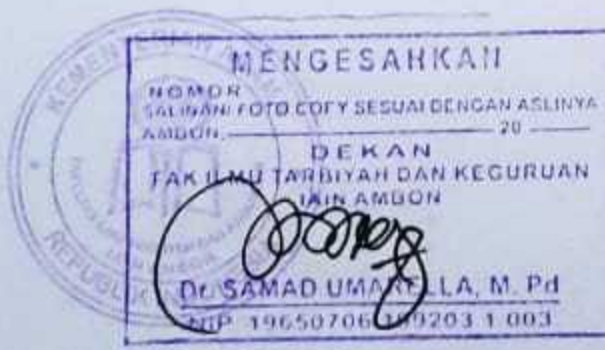 MENGESAHKAN
NOMOR
SALINAN/FOTO COPY SESUAI DENGAN ASLINYA
AMBON, 20
DEKAN
FAK ILMU TARBIYAH DAN KEGURUAN
IAIN AMBON
Dr. SAMAD UMARELLA, M. Pd
NIP 19650706 199203 1 003
KEMENTERIAN AGAMA
REPUBLIK